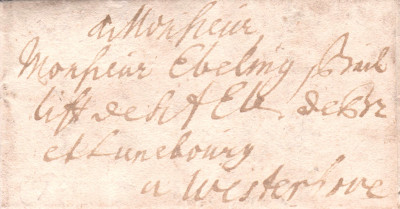 A Monsieur
Monsieur Ebeling Bail
lift de S A El. de Br
et Lunebourg
a Westerhove